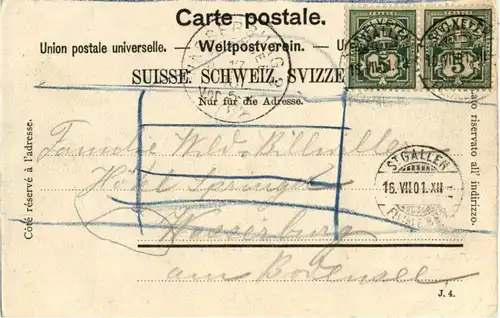 Carte postale.
Union postale universelle. — Weltpostverein. — U
SUISSE. SCHWEIZ. SVIZZE
Nur für die Adresse.
Côté réservé à l'adresse.
lato riservato all' indirizzo.
5 5
ST. GALLEN
16. VII. 01. XII
Familie Wild-Billwiller
Hôtel
Wasserburg
am Bodensee
J. 4.